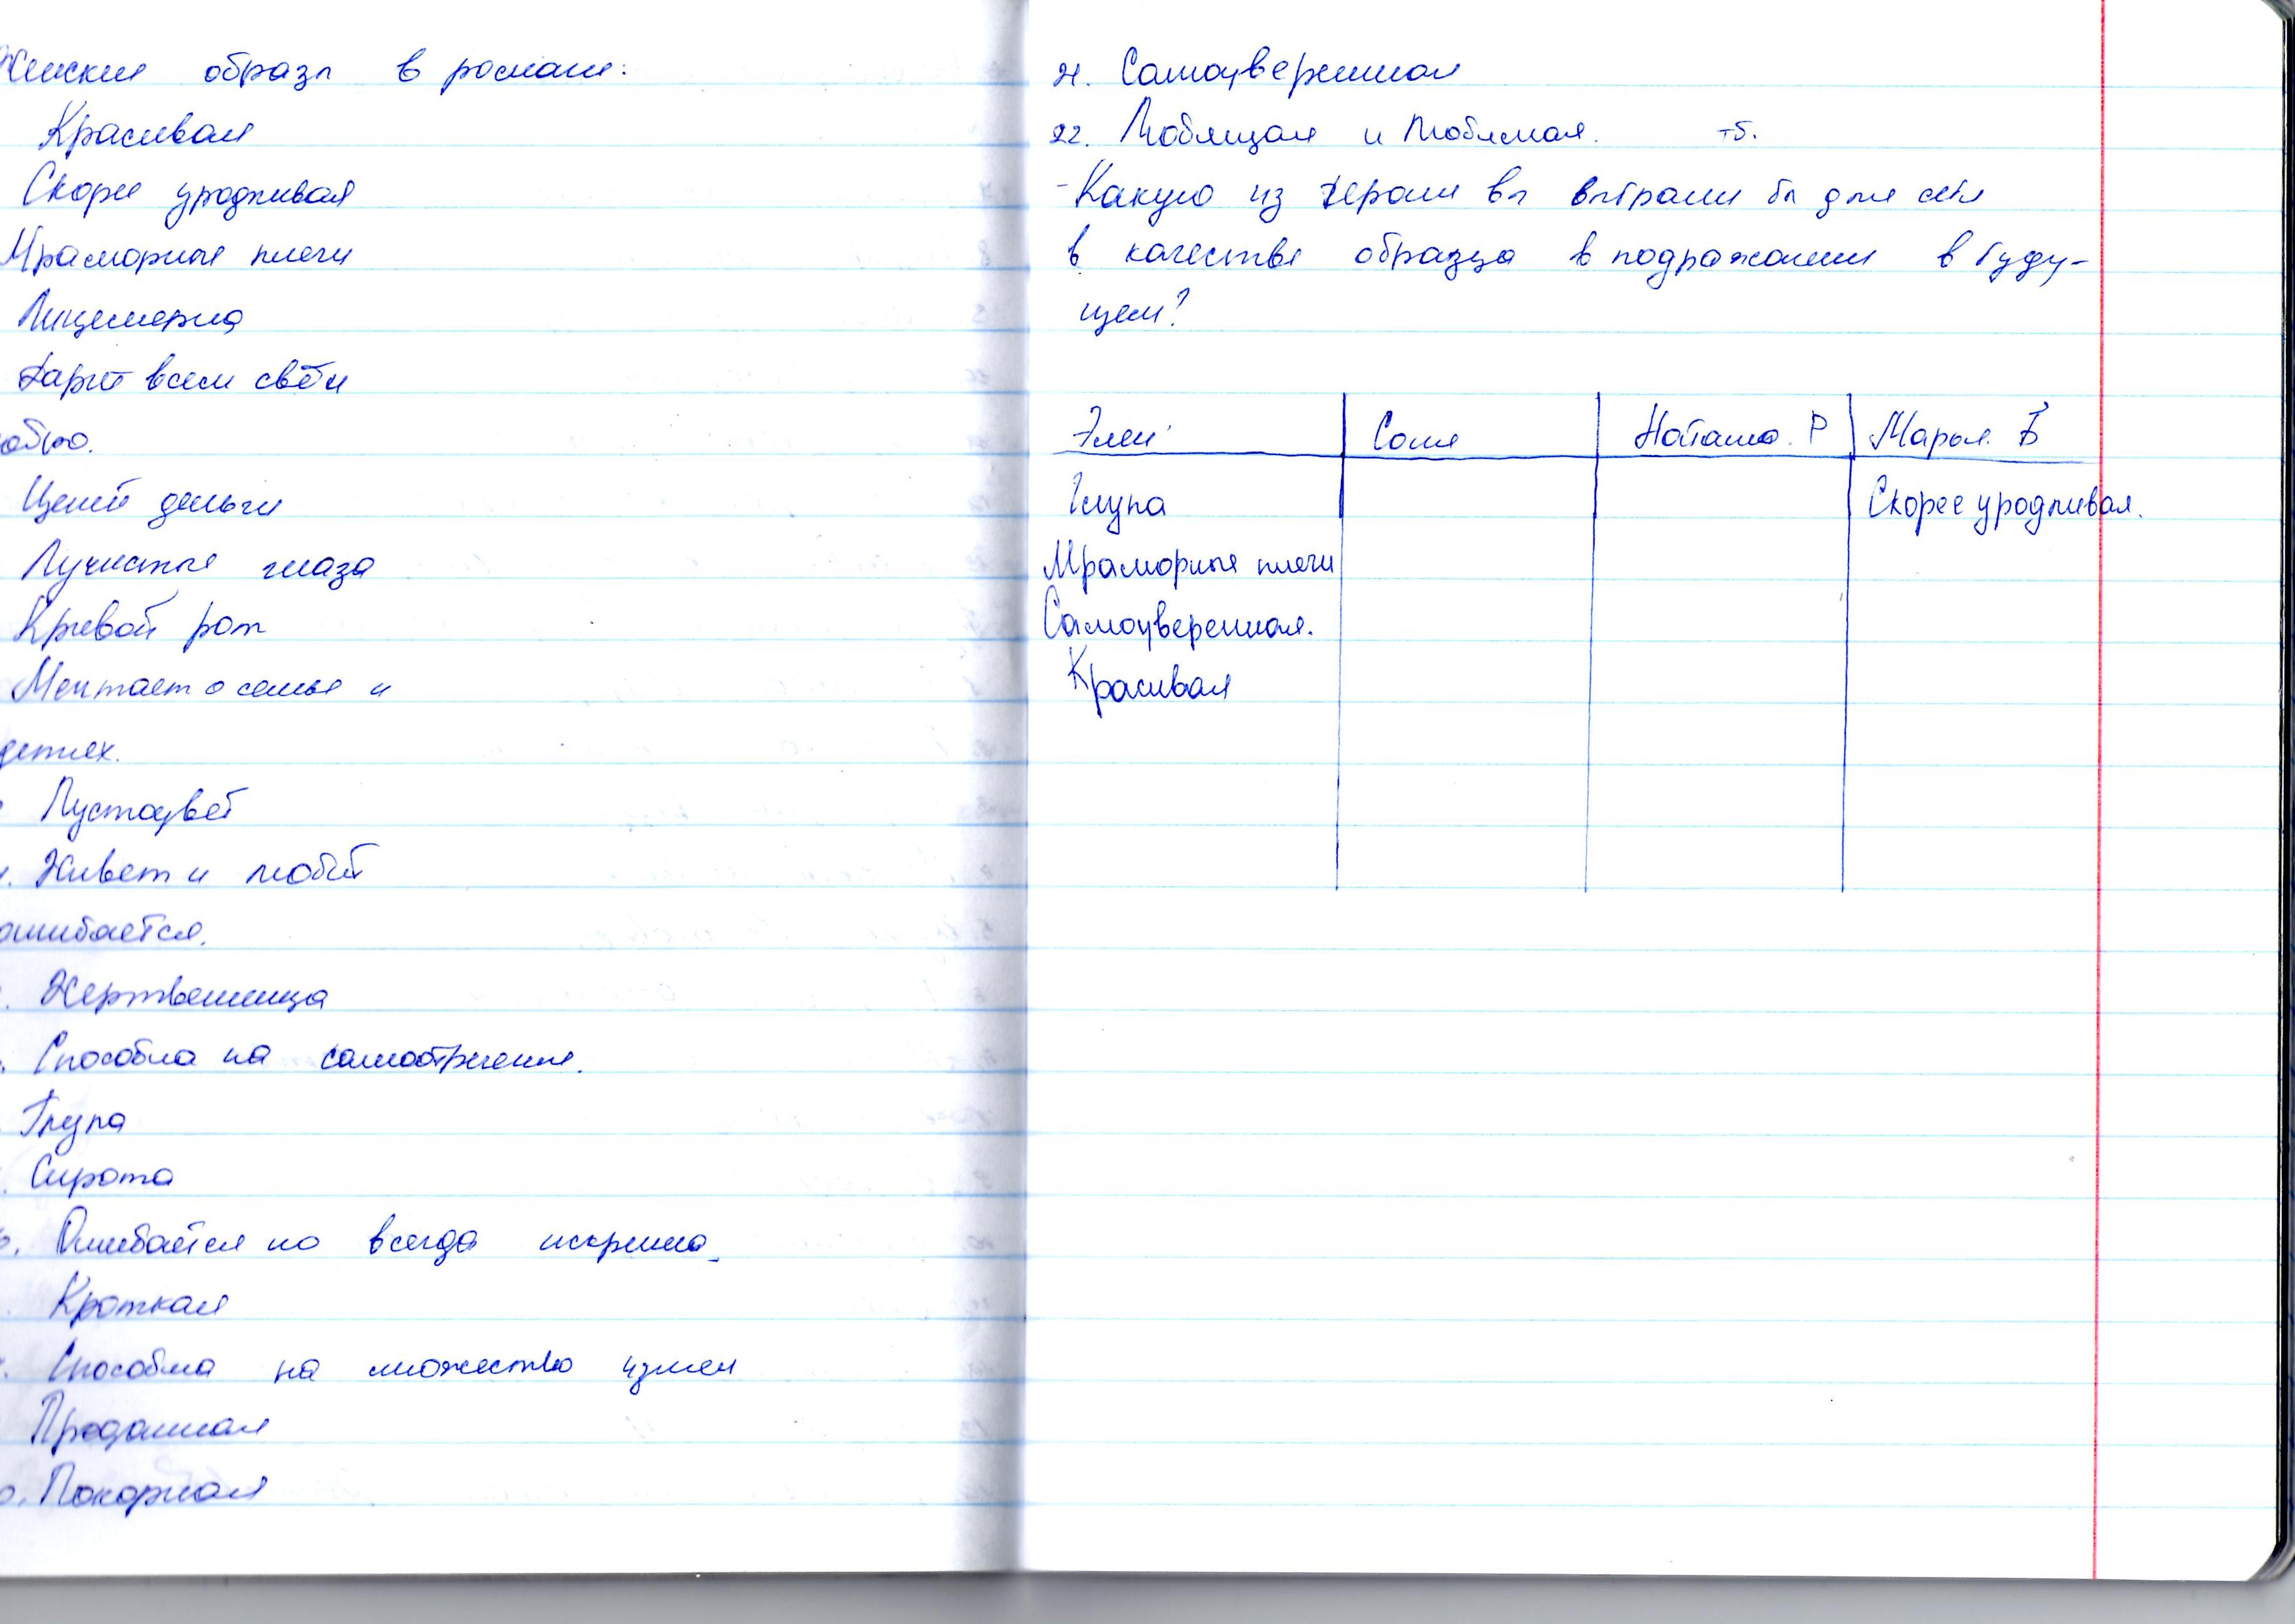 Женские образы в романе:
Красивая
Скорее уродливая
Мраморные плечи
Лицемерна
Дарит всем свет и
любовь.
Ценит деньги
Лучистые глаза
Кривой рот
Мечтает о семье и
детях.
Пустоцвет
Живет и любит
ошибается.
Жертвенница
Способна на самоотречение.
Глупа
Сирота
Ошибается но всегда искренна
Кроткая
Способна на множество измен
Преданная
Покорная
21. Самоуверенная
22. Любящая и Любимая. тб.
- Какую из героин вы выбрали бы для себя
в качестве образца в подражании в буду-
щем?
Элен Соня Наташа. Р Марья. Б
Глупа Скорее уродливая.
Мраморные плечи
Самоуверенная.
Красивая